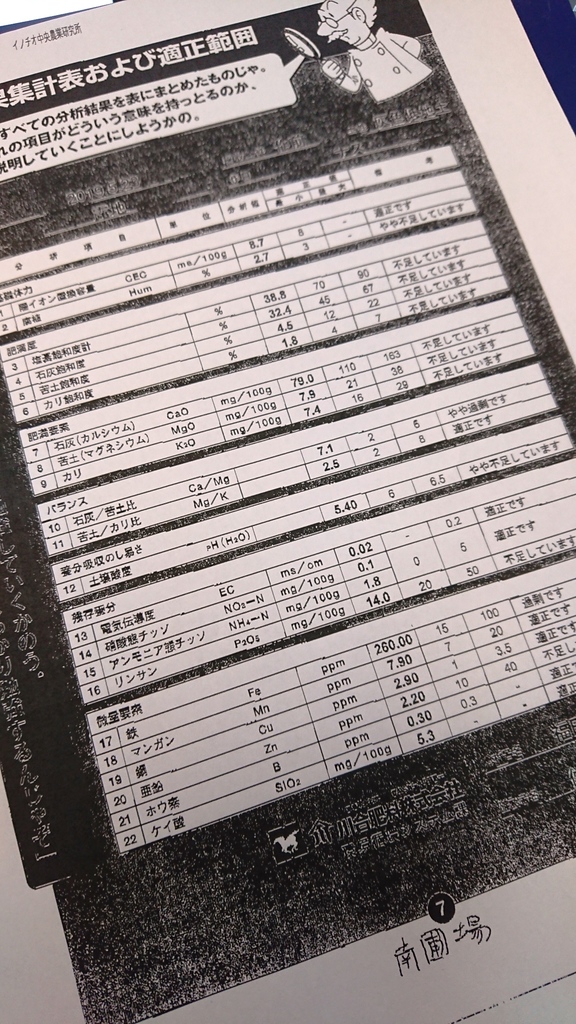 イノチオ中央農業研究所
果集計表および適正範囲
すべての分析結果を表にまとめたものじゃ。
れの項目がどういう意味を持っとるのか、
説明していくことにしようかの。
分 析 項 目 単 位 分析値 適正値 最小 最大 備 考
基礎体力
1 陽イオン置換容量 CEC ms/100g 8.7 8 - 適正です
2 腐植 Hum % 2.7 3 - やや不足しています
肥満度
3 塩基飽和度計 % 38.8 70 90 不足しています
4 石灰飽和度 % 32.4 45 67 不足しています
5 苦土飽和度 % 4.5 12 22 不足しています
6 カリ飽和度 % 1.8 4 7 不足しています
肥満要素
7 石灰(カルシウム) CaO mg/100g 79.0 110 163 不足しています
8 苦土(マグネシウム) MgO mg/100g 7.9 21 38 不足しています
9 カリ K₂O mg/100g 7.4 16 29 不足しています
バランス
10 石灰/苦土比 Ca/Mg 7.1 2 6 やや過剰です
11 苦土/カリ比 Mg/K 2.5 2 6 適正です
養分吸収のし易さ
12 土壌酸度 pH(H₂O) 5.40 6 6.5 やや不足しています
残存養分
13 電気伝導度 EC ms/cm 0.02 - 0.2 適正です
14 硝酸態チッソ NO₃-N mg/100g 0.1 0 5 適正です
15 アンモニア態チッソ NH₄-N mg/100g 1.8
16 リンサン P₂O₅ mg/100g 14.0 20 50 不足しています
微量要素
17 鉄 Fe ppm 260.00 15 100 過剰です
18 マンガン Mn ppm 7.90 7 20 適正です
19 銅 Cu ppm 2.90 1 3.5 適正です
20 亜鉛 Zn ppm 2.20 10 40 不足し
21 ホウ素 B ppm 0.30 0.3 - 適正
22 ケイ酸 SiO₂ mg/100g 5.3 - - 適正
7
南圃場